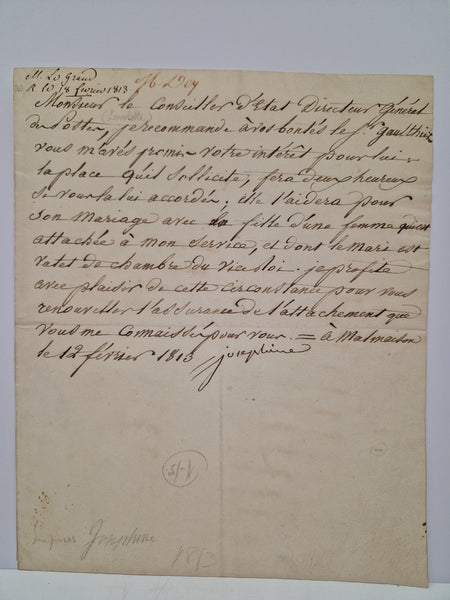 M. Le Grand
R. le 18 février 1813
Monsieur le Conseiller d'Etat Directeur Général
(Lavalette)
des Postes, je recommande à vos bontés le Sr. Gaulthier
vous m'avés promis votre intérêt pour lui.
la place qu'il sollicite, fera deux heureux
si vous la lui accordés; elle l'aidera pour
son Mariage avec la fille d'une femme qui est
attachée à mon service, et dont le Mari est
valet de chambre du Viceroi. je profite
avec plaisir de cette circonstance pour vous
renouveller l'assurance de l'attachement que
vous me connaissés pour vous. = à Malmaison
le 12 février 1813 Josephine
Josephine
1813